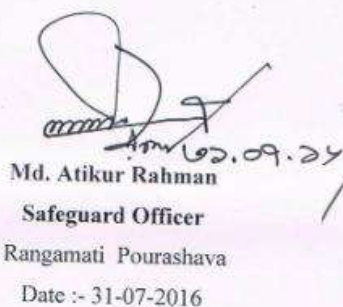 Md. Atikur Rahman
Safeguard Officer
Rangamati Pourashava
Date :- 31-07-2016